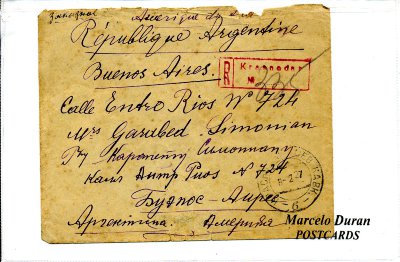 Заказное
Amerique du sud
République Argentine
Buenos Aires.
R Krasnodar
№
Calle Entro Rios № 724
Mrs Garabed Simonian
Гну Карапету Симоняну
Калл Энтр Риос № 724
Буэнос-Айрес
Аргентина. Америка
6
Marcelo Duran
POSTCARDS